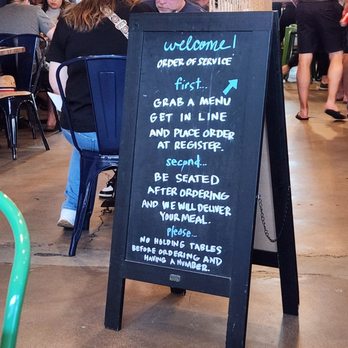 welcome!
ORDER OF SERVICE
first...
GRAB A MENU
GET IN LINE
AND PLACE ORDER
AT REGISTER.
second...
BE SEATED
AFTER ORDERING
AND WE WILL DELIVER
YOUR MEAL.
please...
NO HOLDING TABLES
BEFORE ORDERING AND
HAVING A NUMBER.